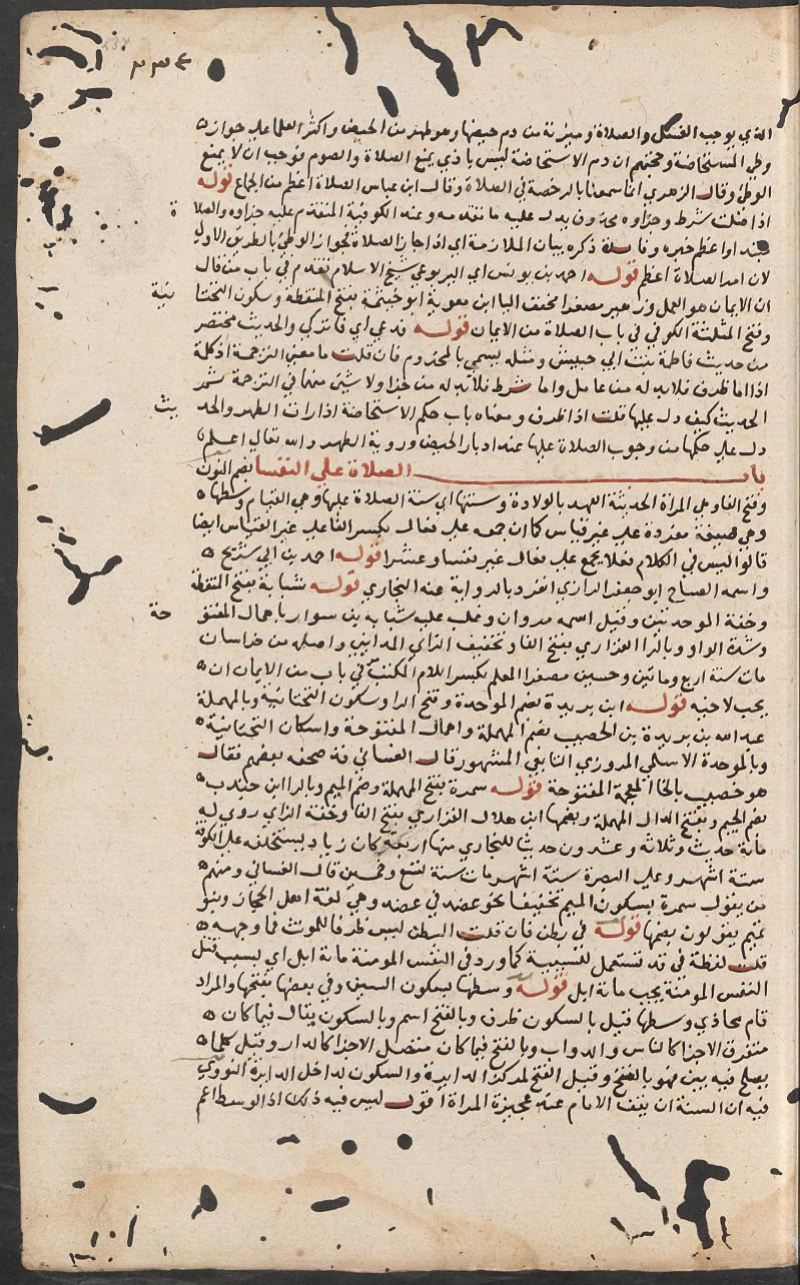 ٢٣٤
الذي يوجب الغسل والصلاة وميزته من دم حيضها وهو طهر من الحيض واكثر العلما علي جواز
وطي المستحاضة وحجتهم ان دم الاستحاضة ليس باذي يمنع الصلاة والصوم فوجب ان لا يمنع
الوطئ وقال الزهري انا سمعنا بالرخصة في الصلاة وقال ابن عباس الصلاة اعظم من الجماع قوله
اذا صلت شرط وجزاوه محذوف يدل عليه ما تقدمه وعند الكوفية المتقدم عليه جزاوه والصلا ة
مبتدا واعظم خبره وفايدة ذكره بيان الملازمة اي اذا جاز الصلاة فجواز الوطئ بالطريق الاولي
لان امر الصلاة اعظم قوله احمد بن يونس اي اليربوعي شيخ الاسلام تقدم في باب من قال
ان الايمان هو العمل وزهير مصغرا مخفف اليا ابن معوية ابو خيثمة بفتح المنقطة وسكون التحتا نية
وفتح المثلثة الكوفي في باب الصلاة من الايمان قوله فدعي اي فاتركي والحديث مختصر
من حديث فاطمة بنت ابي حبيش ومثله يسمي بالمخروم فان قلت ما معني الترجمة اذ كلمة
اذا اما ظرف فلابد له من عامل واما شرط فلابد له من جزا ولا شئ منهما في الترجمة ثم
الحديث كيف دل عليها قلت اذا ظرف ومعناه باب حكم الاستحاضة اذا رات الطهر والحد يث
دل علي حكمها من وجوب الصلاة عليها عند ادبار الحيض وروية الطهر والله تعالي اعلم
باب الصلاة علي النفسا بضم النون
وفتح الفا وهي المراة الحديثة العهد بالولادة وسنتها اي سنة الصلاة عليها وهي القيام وسطها
وهي صيغة مفردة علي غير قياس كما ان جمعه علي فعال بكسر الفا علي غير القياس ايضا
قالوا ليس في الكلام فعلا يجمع علي فعال غير نفسا وعشرا قوله احمد بن ابي سريج
واسمه الصباح ابو جعفر الرازي انفرد بالرواية عنه البخاري قوله شبابة بفتح المنقطة
وخفة الموحدتين وقيل اسمه مروان وغلب عليه شبابة بن سوار باهمال المفتو حة
وشدة الواو وبالرا الفزاري بفتح الفا وتخفيف الزاي المدايني واصله من خراسان
مات سنة اربع وماتين وحسين مصغرا المعلم بكسر اللام المكتب في باب من الايمان ان
يحب لاخيه قوله ابن بريدة بضم الموحدة وفتح الرا وسكون التحتانية وبالمهملة
عبد الله بن بريدة بن الحصيب بضم المهملة واهمال المفتوحة واسكان التحتانية
وبالموحدة الاسلمي المروزي التابعي المشهور قال الغساني قد صحفه بعضهم فقال
هو خصيب بالخا المعجمة المفتوحة قوله سمرة بفتح المهملة وضم الميم وبالرا ابن جندب
بضم الجيم وبفتح الدال المهملة وبضمها ابن هلال الفزاري بفتح الفا وخفة الزاي روي له
مأية حديث وثلاثة وعشرون حديثا للبخاري منها اربعة كان زياد يستخلفه علي الكوفة
ستة اشهر وعلي البصرة ستة اشهر مات سنة تسع وخمسين قال الغساني ومنهم
من يقول سمرة بسكون الميم تخفيفا نحو عضد في عضد وهي لغة اهل الحجاز وبنو
تميم يقولون بضمها قوله في بطن فان قلت البطن ليس ظرفا للموت فما وجهه
قلت لفظة في قد تستعمل للسببية كما ورد في النفس المومنة ماية ابل اي بسبب قتل
النفس المومنة يجب ماية ابل قوله وسطها بسكون السين وفي بعضها بفتحها والمراد
قام محاذي وسطها قيل بالسكون ظرف وبالفتح اسم وبالسكون يقال فيما كان
متفرق الاجزا كالناس والدواب وبالفتح فيما كان متصل الاجزا كالدار وقيل كلما
يصلح فيه بين فهو بالفتح وقيل الفتح لمركز الدايرة والسكون لداخل الدايرة النووي
فيه ان السنة ان يقف الامام عند عجيزة المراة اقول ليس فيه ذلك اذ الوسط اعم